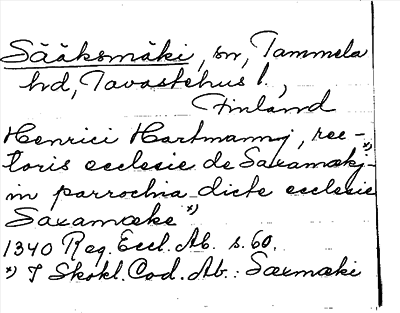 Sääksmäki, sn, Tammela
hd, Tavastehus l.,
Finland
Henrici Hartmannj, rec-
toris ecclesie de Saxamækj *)
in parrochia dicte ecclesie
Saxamæke *)
1340 Reg. Eccl. Ab. s. 60.
*) I Skokl. Cod. Ab.: Saxmæki